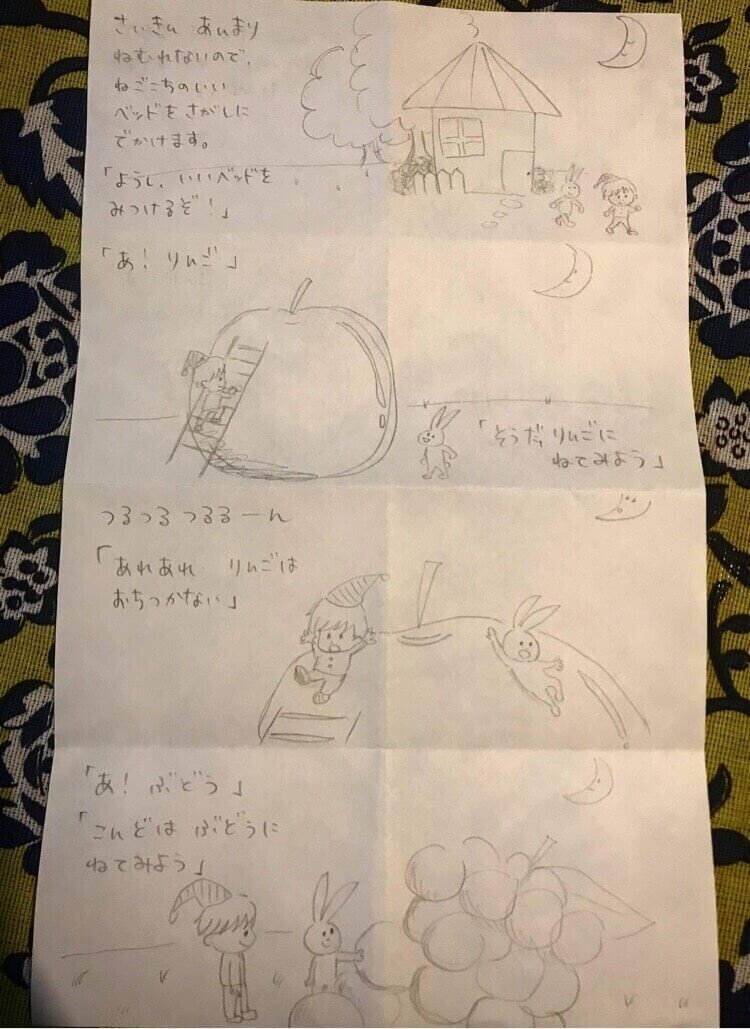 さいきん あんまり
ねむれないので、
ねごこちのいい
ベッドをさがしに
でかけます。
「ようし、いいベッドを
みつけるぞ！」
「あ！りんご」
「そうだ、りんごに
ねてみよう」
つるつるつるるーん
「あれあれ りんごは
おちつかない」
「あ！ぶどう」
「こんどは ぶどうに
ねてみよう」